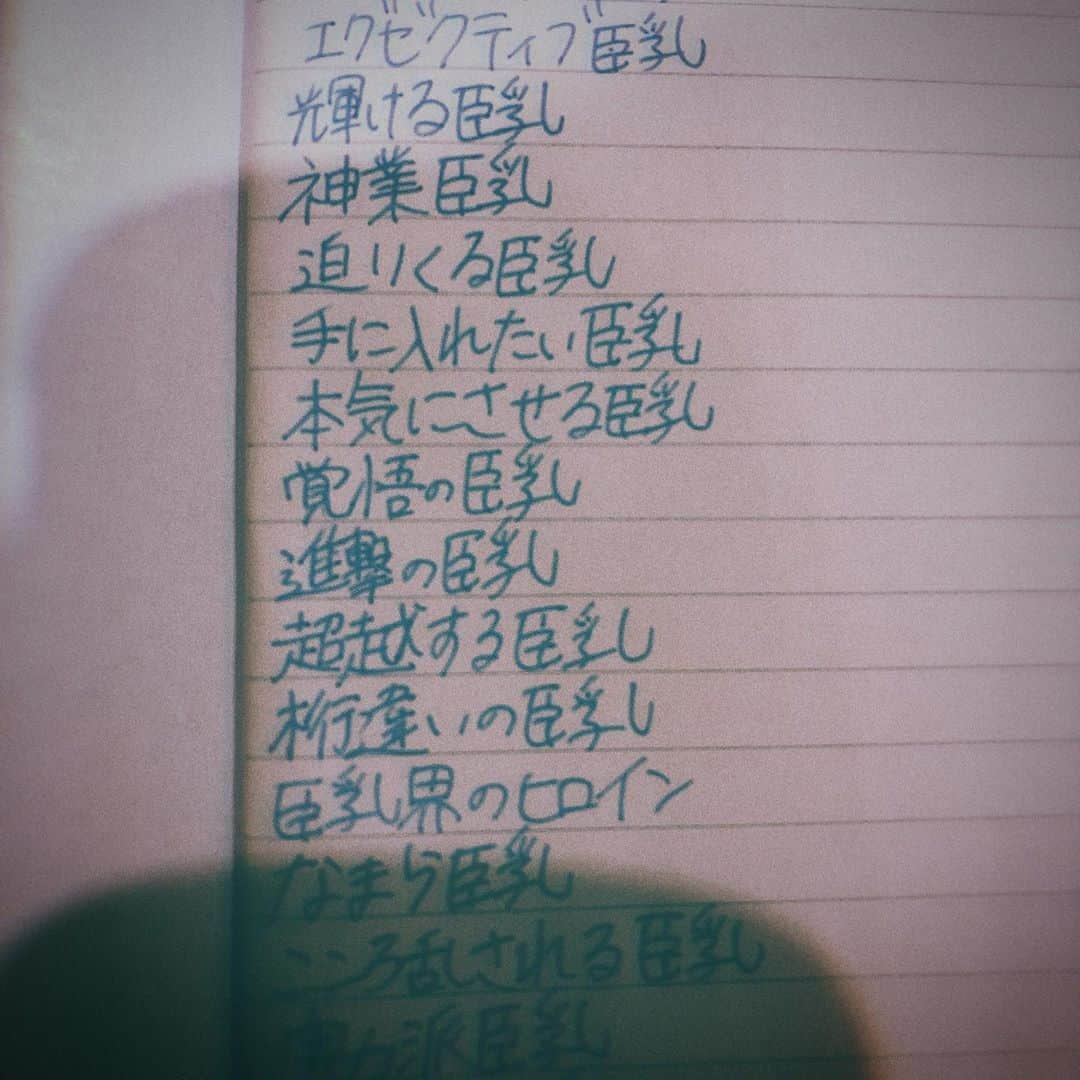 エグゼクティブ臣乳
輝ける臣乳
神業臣乳
迫りくる臣乳
手に入れたい臣乳
本気にさせる臣乳
覚悟の臣乳
進撃の臣乳
超越する臣乳
桁違いの臣乳
臣乳界のヒロイン
なまら臣乳
こころ乱される臣乳
派臣乳